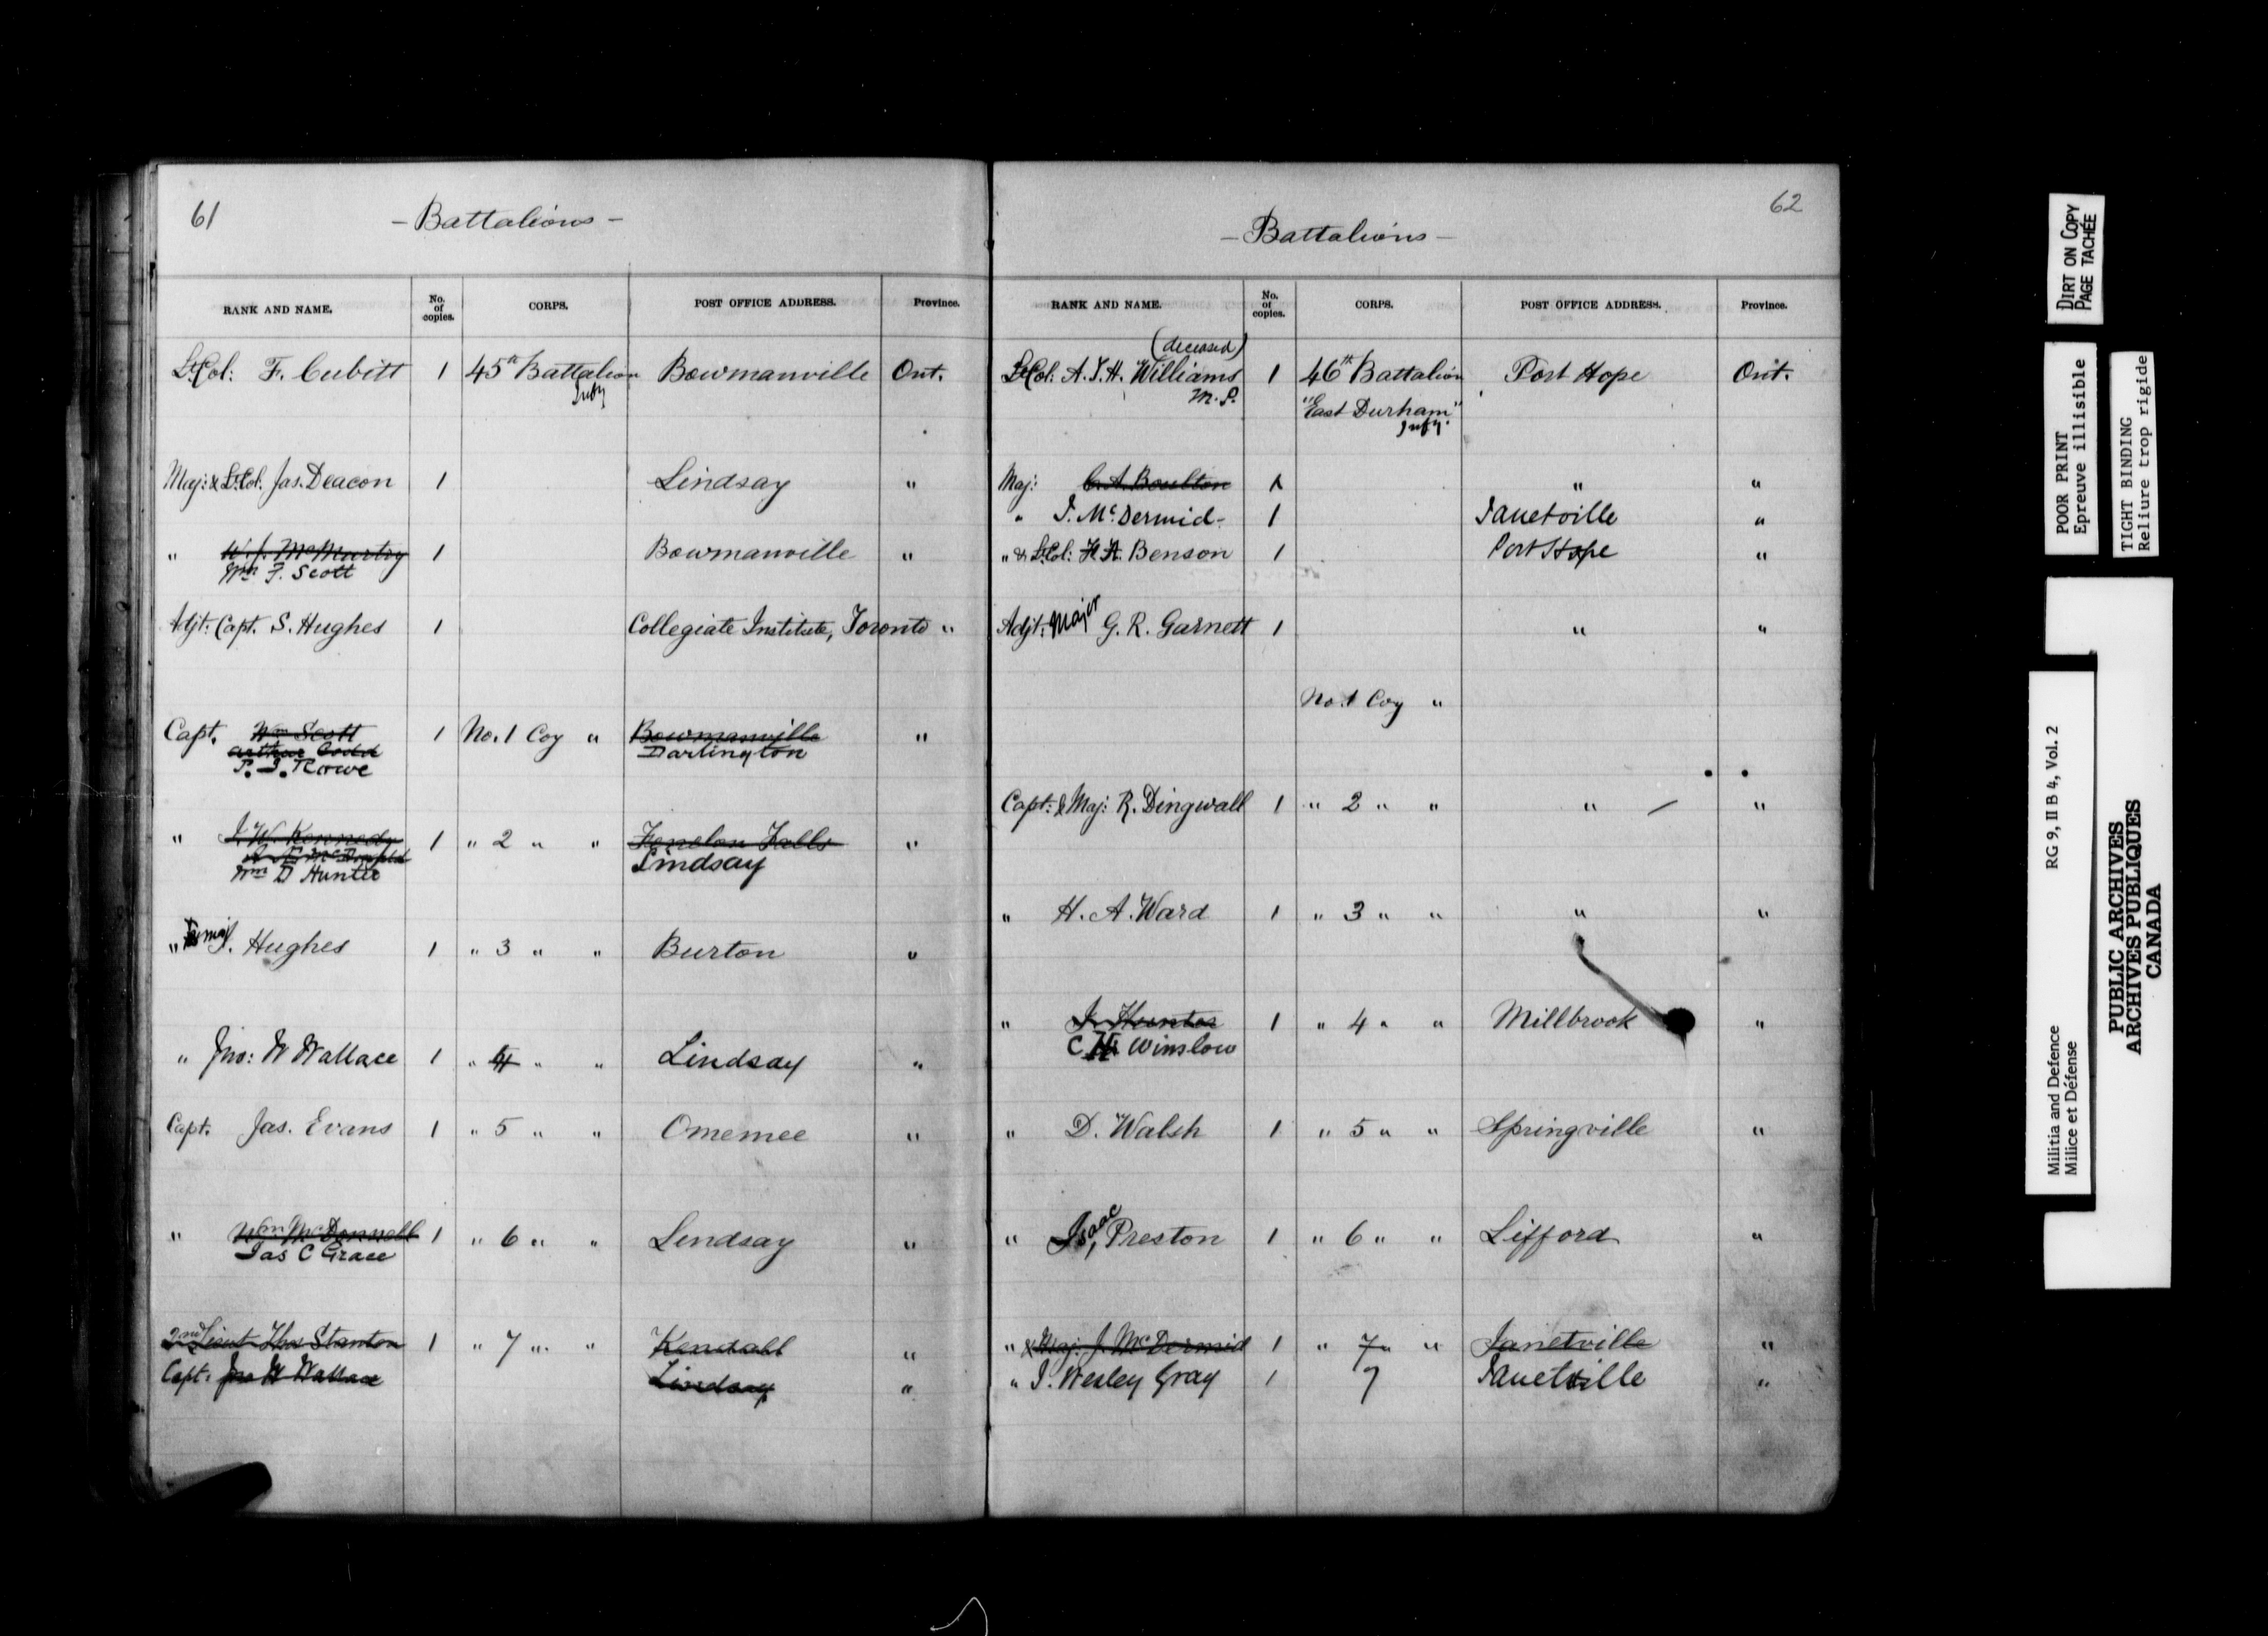 61
- Battalions -
RANK AND NAME. No. of copies. CORPS. POST OFFICE ADDRESS. Province.
Lt Col: F. Cubitt 1 45th Battalion Bowmanville Ont.
Infy
Maj: & Lt Col. Jas. Deacon 1 Lindsay "
" W. J. McMurtry 1 Bowmanville "
Wm F. Scott
Adjt: Capt. S. Hughes 1 Collegiate Institute, Toronto "
Capt. Wm Scott 1 No. 1 Coy " Bowmanville "
Arthur Darlington
P. J. Rowe
" J. W. Kennedy 1 " 2 " " Fenelon Falls "
Wm D Hunter Lindsay
" J. Hughes 1 " 3 " " Burton "
" Jno: W Wallace 1 " 4 " " Lindsay "
Capt. Jas. Evans 1 " 5 " " Omemee "
" Wm McDonnell 1 " 6 " " Lindsay "
Jas C Grace
2nd Lieut Thos Stanton 1 " 7 " " Kendall "
Capt. Jno W Wallace Lindsay "
62
- Battalions -
RANK AND NAME. No. of copies. CORPS. POST OFFICE ADDRESS. Province.
(deceased)
Lt Col: A. T. H. Williams 1 46th Battalion Port Hope Ont.
M. P. "East Durham"
Infy.
Maj: C. A. Boulton 1 " "
" J. McDermid 1 Janetville "
" & Lt Col: H. A. Benson 1 Port Hope "
Adjt: Major G. R. Garnett 1 " "
No. 1 Coy "
Capt: & Maj: R. Dingwall 1 " 2 " " " "
" H. A. Ward 1 " 3 " " " "
" J. Hunter 1 " 4 " " Millbrook "
C H Winslow
" D. Walsh 1 " 5 " " Springville "
" Isaac Preston 1 " 6 " " Lifford "
" & Maj. J. McDermid 1 " 7 " " Janetville "
" J. Wesley Gray 1 7 Janetville "
DIRT ON COPY
PAGE TACHÉE
POOR PRINT
Epreuve illisible
TIGHT BINDING
Reliure trop rigide
RG 9, II B 4, Vol. 2
Militia and Defence
Milice et Défense
PUBLIC ARCHIVES
ARCHIVES PUBLIQUES
CANADA